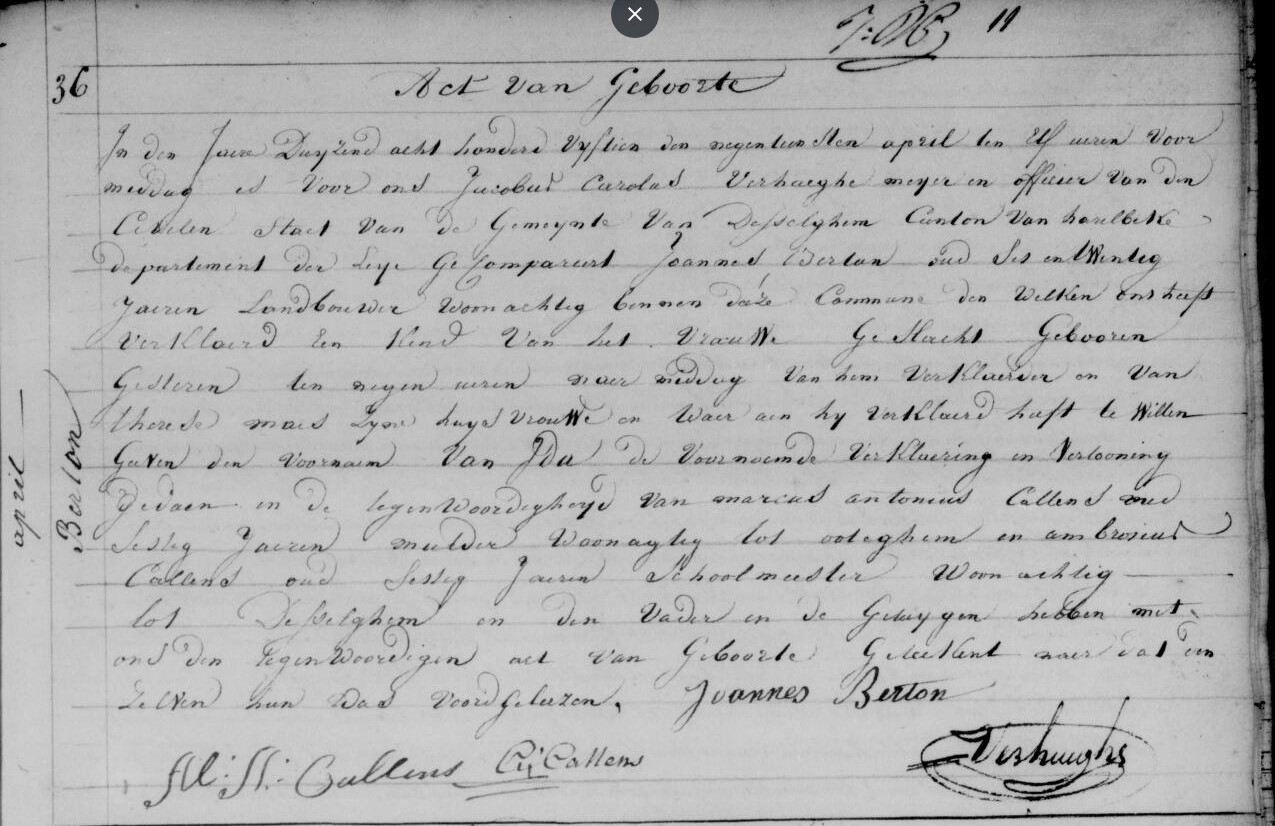 11
36
Act van Geboorte
In den Jaere Duyzend acht honderd vyftien den negentiensten april ten Elf ueren voor
middag es voor ons Jacobus Carolus Verhaeghe meyer en officier van den
Civielen Staet van de Gemeynte van Desselghem Canton van harelbeke
departement der Leye Gecompareert Joannes Berton oud ses en twenteg
Jaeren Landbouwer woonachteg binnen deze Commune den welken ons heeft
verklaerd een kind van het vrouwe Geslacht Gebooren
Gisteren ten negen ueren naer middag van hem verklaerder en van
therese maes zyne huysvrouwe en waer aen hy verklaerd heeft te willen
Geven den voornaem van Ida de voornoemde verklaering en vertooning
Gedaen in de tegenwoordigheyd van marcus antonius Callens oud
sesteg Jaeren mulder woonagteg tot ooteghem en ambrosius
Callens oud sesteg Jaeren Schoolmeester woonachtig
tot Desselghem en den vader en de Getuygen hebben met
ons den tegenwoordigen act van Geboorte Geteekent naer dat den
zelven hun was voordgelezen. Joannes Berton
M: A: Callens Callens Verhaeghe
april
Berton